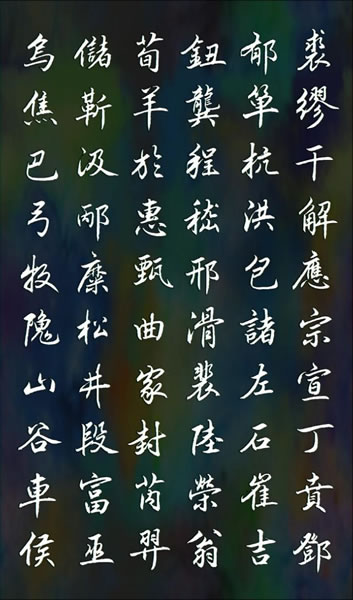 裘繆干解應宗宣丁賁鄧
郁單杭洪包諸左石崔吉
鈕龔程嵇邢滑裴陸榮翁
荀羊於惠甄曲家封芮羿
儲靳汲邴糜松井段富巫
烏焦巴弓牧隗山谷車侯